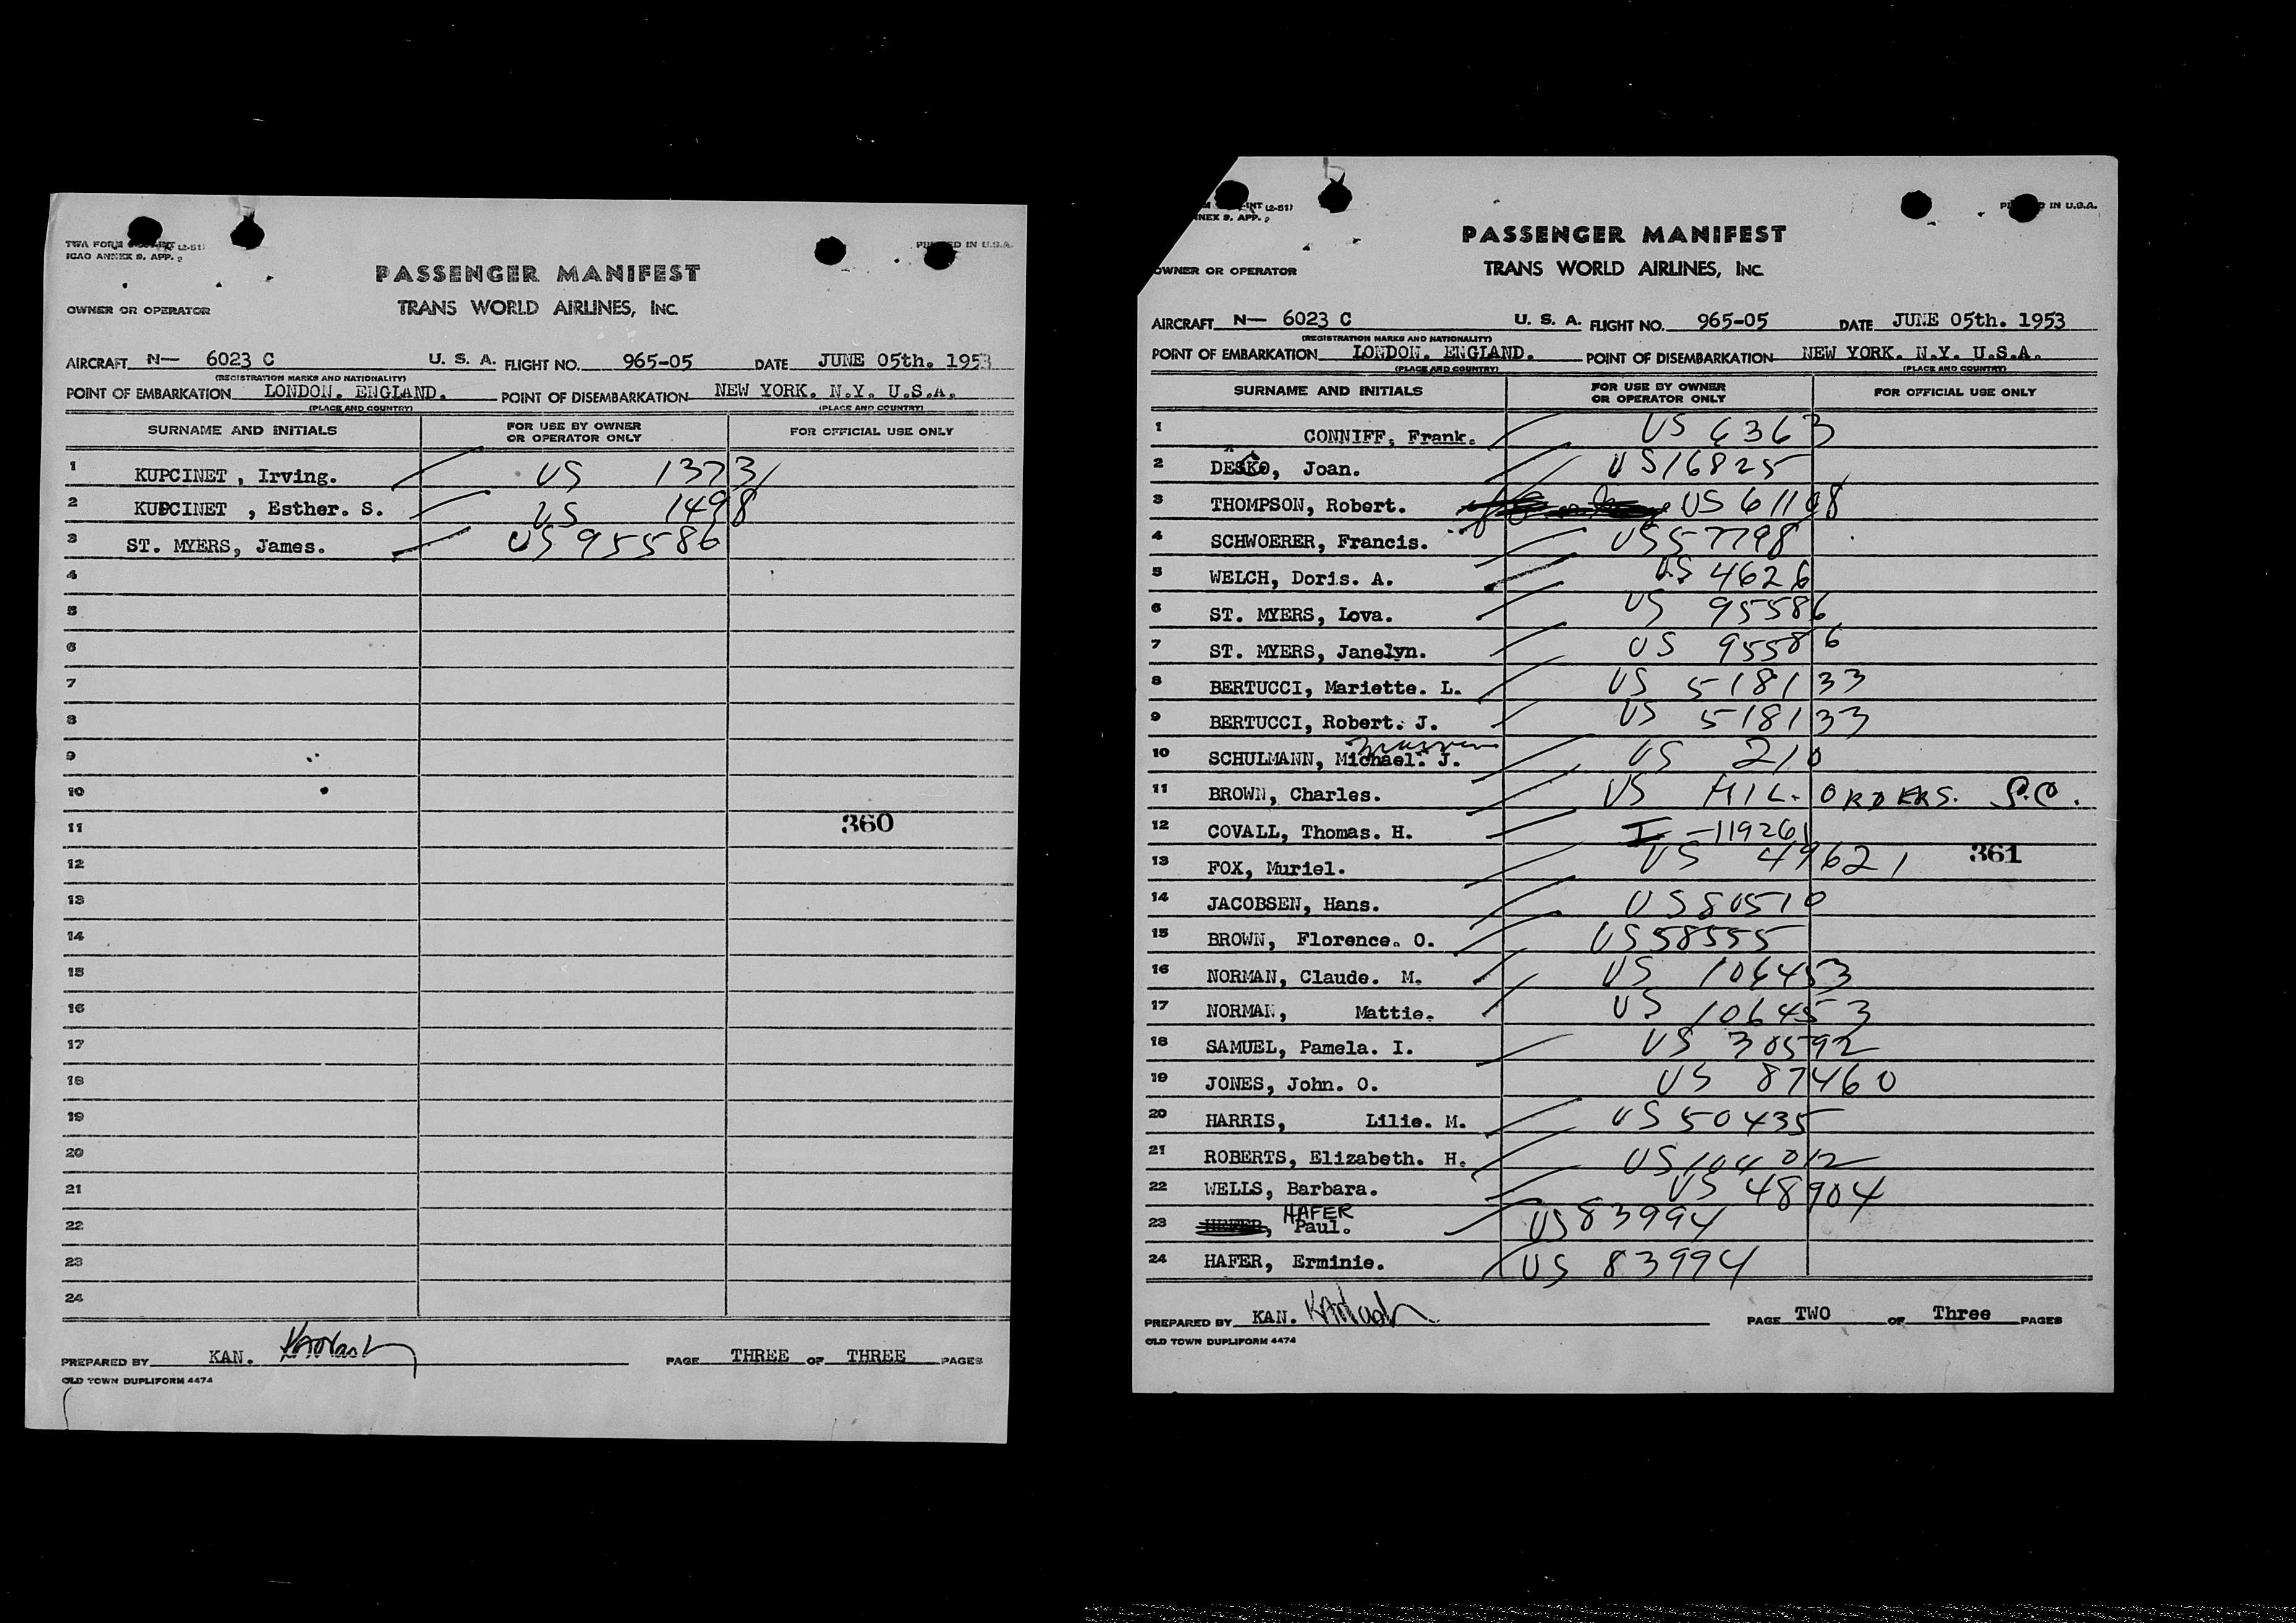 TWA FORM (2-51)
PRINTED IN U.S.A.
ICAO ANNEX 9. APP. 2
PASSENGER MANIFEST
OWNER OR OPERATOR TRANS WORLD AIRLINES, INC.
AIRCRAFT N— 6023 C U. S. A. FLIGHT NO. 965-05 DATE JUNE 05th. 1953
(REGISTRATION MARKS AND NATIONALITY)
POINT OF EMBARKATION LONDON. ENGLAND. POINT OF DISEMBARKATION NEW YORK. N.Y. U.S.A.
(PLACE AND COUNTRY) (PLACE AND COUNTRY)
SURNAME AND INITIALS FOR USE BY OWNER OR OPERATOR ONLY FOR OFFICIAL USE ONLY
1 KUPCINET , Irving. US 13731
2 KUPCINET , Esther. S. US 1498
3 ST. MYERS, James. US 95586
4
5
6
7
8
9
10
11 360
12
13
14
15
16
17
18
19
20
21
22
23
24
PREPARED BY KAN. PAGE THREE OF THREE PAGES
OLD TOWN DUPLIFORM 4474
INT (2-51)
IN U.S.A.
ANNEX 9. APP. 2
PASSENGER MANIFEST
OWNER OR OPERATOR TRANS WORLD AIRLINES, INC.
AIRCRAFT N— 6023 C U. S. A. FLIGHT NO. 965-05 DATE JUNE 05th. 1953
(REGISTRATION MARKS AND NATIONALITY)
POINT OF EMBARKATION LONDON. ENGLAND. POINT OF DISEMBARKATION NEW YORK. N.Y. U.S.A.
(PLACE AND COUNTRY) (PLACE AND COUNTRY)
SURNAME AND INITIALS FOR USE BY OWNER OR OPERATOR ONLY FOR OFFICIAL USE ONLY
1 CONNIFF, Frank. US 6363
2 Joan. US16825
3 THOMPSON, Robert. US 61108
4 SCHWOERER, Francis. US57798
5 WELCH, Doris. A. US 4626
6 ST. MYERS, Lova. US 95586
7 ST. MYERS, Janelyn. US 95586
8 BERTUCCI, Mariette. L. US 518133
9 BERTUCCI, Robert. J. US 518133
10 SCHULMANN, Michael. J. US 210
11 BROWN, Charles. US MIL. ORDERS. P.O.
12 COVALL, Thomas. H. I-119261
13 FOX, Muriel. US 49621 361
14 JACOBSEN, Hans. US 80510
15 BROWN, Florence. O. US58555
16 NORMAN, Claude. M. US 106453
17 NORMAN, Mattie. US 106453
18 SAMUEL, Pamela. I. US 30592
19 JONES, John. O. US 87460
20 HARRIS, Lilie. M. US50435
21 ROBERTS, Elizabeth. H. US104012
22 WELLS, Barbara. US 48904
23 HAFER Paul. US83994
24 HAFER, Erminie. US 83994
PREPARED BY KAN. PAGE TWO OF Three PAGES
OLD TOWN DUPLIFORM 4474